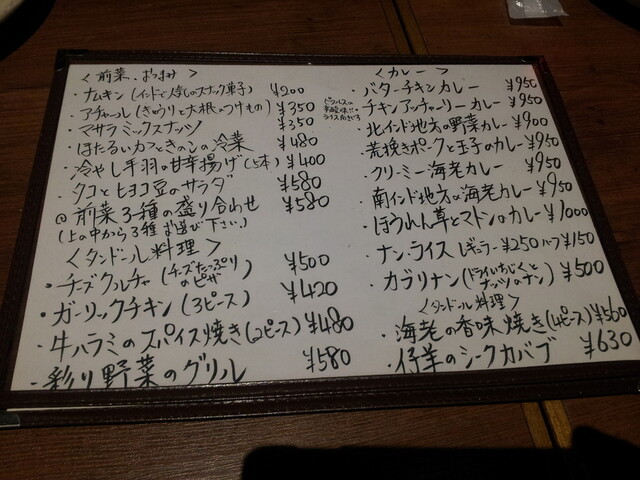 ＜前菜、おつまみ＞
・ナムキン(インドで人気のスナック菓子) ¥200
・アチャール(きゅうりと大根のつけもの) ¥350
・マサラミックスナッツ ¥350
・ほたるいかときのこの冷菜 ¥480
・冷やし手羽の甘辛揚げ(5本) ¥400
・タコとヒヨコ豆のサラダ ¥580
◎前菜3種の盛り合わせ ¥580
(上の中から3種お選び下さい。)
＜タンドール料理＞
・チーズクルチャ(チーズたっぷりのピザ) ¥500
・ガーリックチキン(3ピース) ¥420
・牛ハラミのスパイス焼き(2ピース) ¥480
・彩り野菜のグリル ¥580
＜カレー＞
・バターチキンカレー ¥950
・チキンアッチャーリーカレー ¥950
・北インド地方の野菜カレー ¥900
・荒挽きポークと玉子のカレー ¥950
・クリーミー海老カレー ¥950
・南インド地方の海老カレー ¥950
・ほうれん草とマトンのカレー ¥1000
・ナン・ライス レギュラー¥250 ハーフ¥150
・カラリナン(ドライいちじくとナッツのナン) ¥500
＜タンドール料理＞
・海老の香味焼き(4ピース) ¥560
・仔羊のシークカバブ ¥630